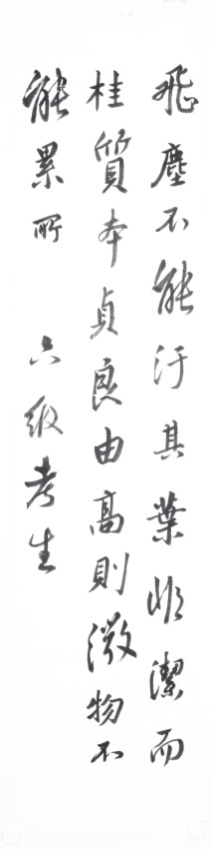 飛塵不能汙其葉非潔而
桂質本貞良由高則微物不
能累所 六级考生